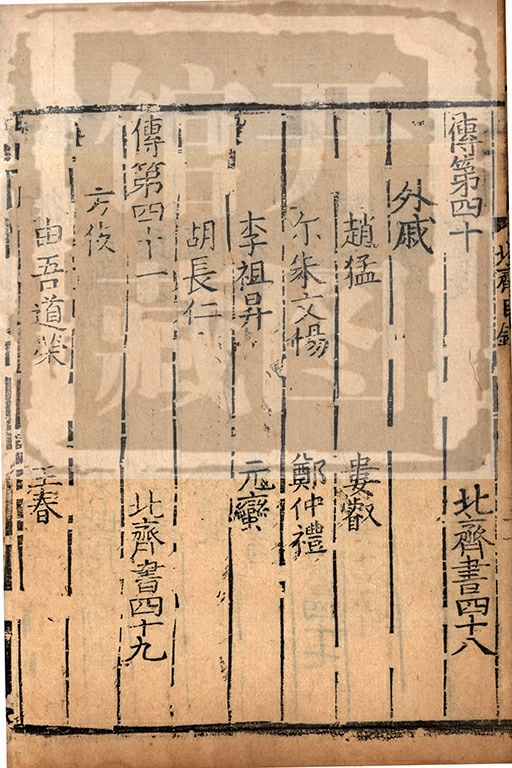 傳第四十 北齊書四十八
外戚
趙猛 婁叡
尒朱文暢 鄭仲禮
李祖昇 元蠻
胡長仁
傳第四十一 北齊書四十九
方伎
由吾道榮 王春